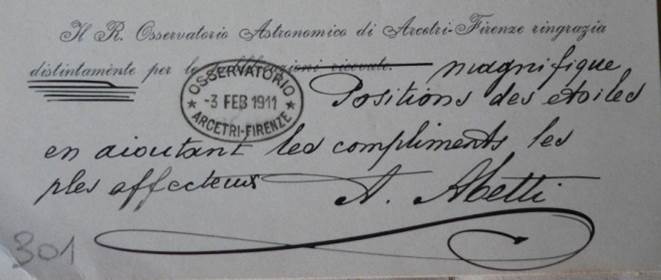 Il R. Osservatorio Astronomico di Arcetri-Firenze ringrazia
distintamente per le pubblicazioni ricevute. magnifique
OSSERVATORIO
-3 FEB 1911
ARCETRI-FIRENZE
Positions des etoiles
en aioutant les compliments les
ples affecteux A. Abetti
301